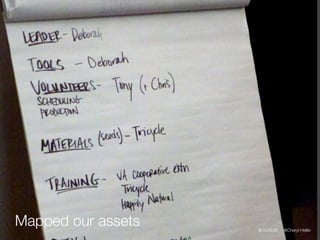 LEADER - Deborah
TOOLS - Deborah
VOLUNTEERS - Tony (+ Chris)
SCHEDULING
PRODUCTION
MATERIALS (seeds) - Tricycle
TRAINING - VA Cooperative extn
Tricycle
Happily Natural
Mapped our assets